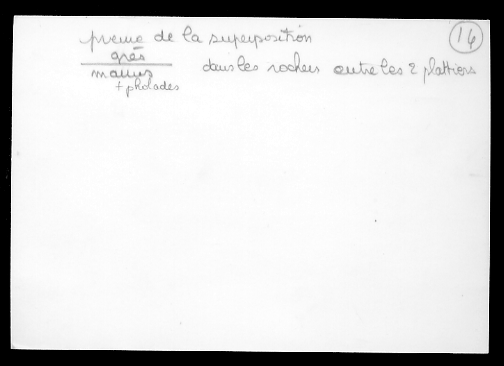 16
preuve de la superposition
grès
marnes dans les rochers entre les 2 plattiers
+ pholades